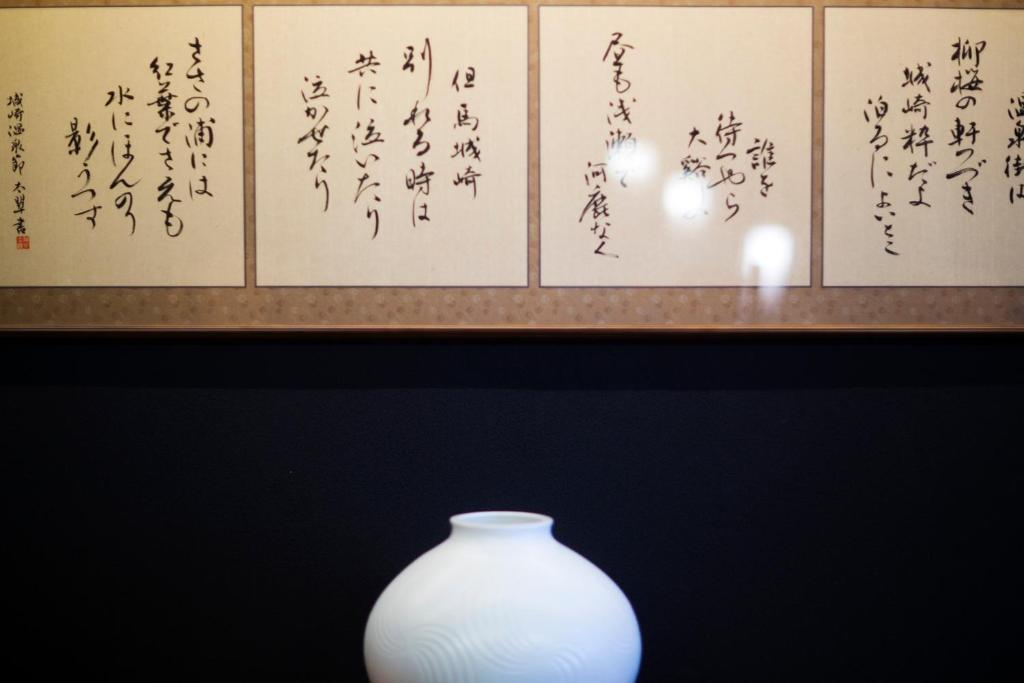 温泉街は
柳桜の軒つづき
城崎粋だよ
泊るによいとこ
誰を
待つやら
大谿
昼も浅瀬で
河鹿なく
但馬城崎
別れる時は
共に泣いたり
泣かせたり
ささの浦には
紅葉でさえも
水にほんのり
影うつす
城崎温泉節 太翠書